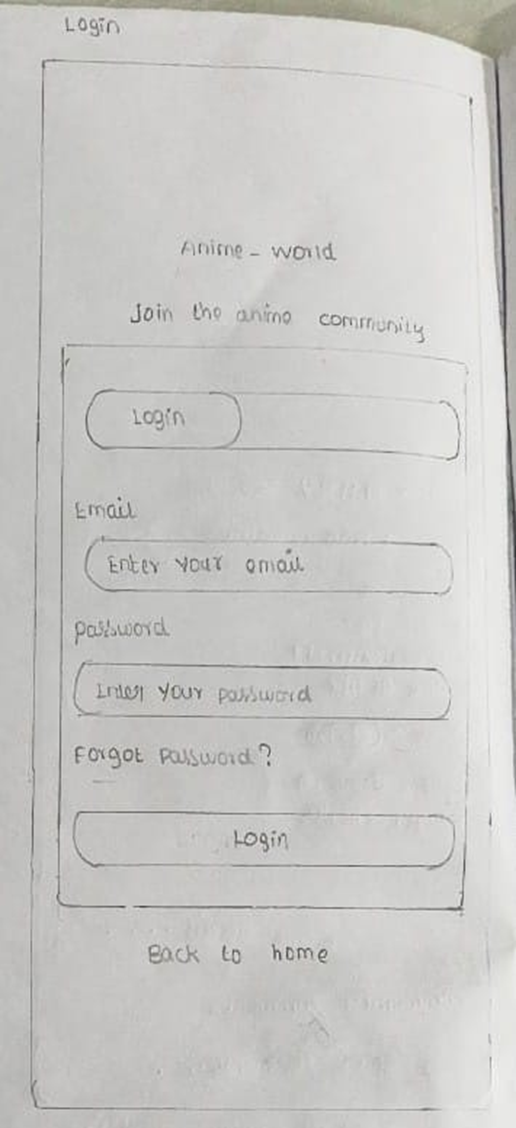 Login
Anime - world
Join the anime community
Login
Email
Enter your email
password
Enter your password
Forgot password?
Login
Back to home